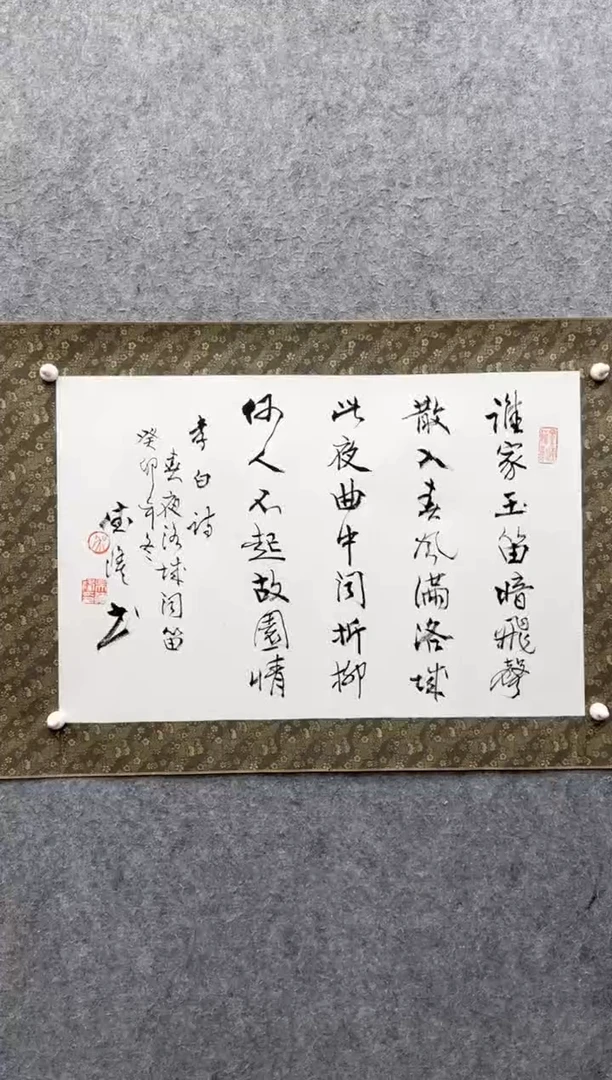 誰家玉笛暗飛聲
散入春風滿洛城
此夜曲中聞折柳
何人不起故園情
李白詩
春夜洛城聞笛
癸卯年冬
書